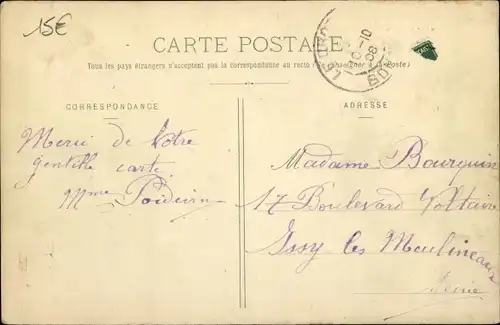 15€
CARTE POSTALE
Tous les pays étrangers n'acceptent pas la correspondance au recto (Se renseigner à la Poste)
CORRESPONDANCE
ADRESSE
Merci de Votre
gentille carte
Mme Poidevin
Madame Bourquin
17 Boulevard Voltaire
Issy les Moulineaux
Seine